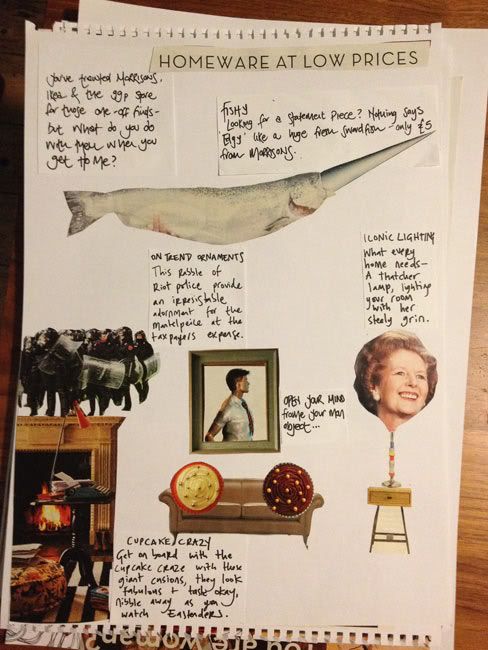 HOMEWARE AT LOW PRICES
You've trawled Morrisons,
Ikea & the 99p store
for those one-off finds-
but what do you do
with them when you
get to me?
FISHY
'Looking for a statement piece? Nothing says
'Edgy' like a huge fresh swordfish - only £5
from Morrisons.
ON TREND ORNAMENTS
This rabble of
Riot police provide
an irresistable
adornment for the
Mantelpeice at the
taxpayers expense.
ICONIC LIGHTING
What every
home needs-
A Thatcher
lamp, lighting
your room
with her
steely grin.
OPEN YOUR MIND
frame your man
object...
CUPCAKE CRAZY
Get on board with the
cupcake craze with these
giant cusions, they look
fabulous + taste okay,
nibble away as you
watch Eastenders.
you are woman?